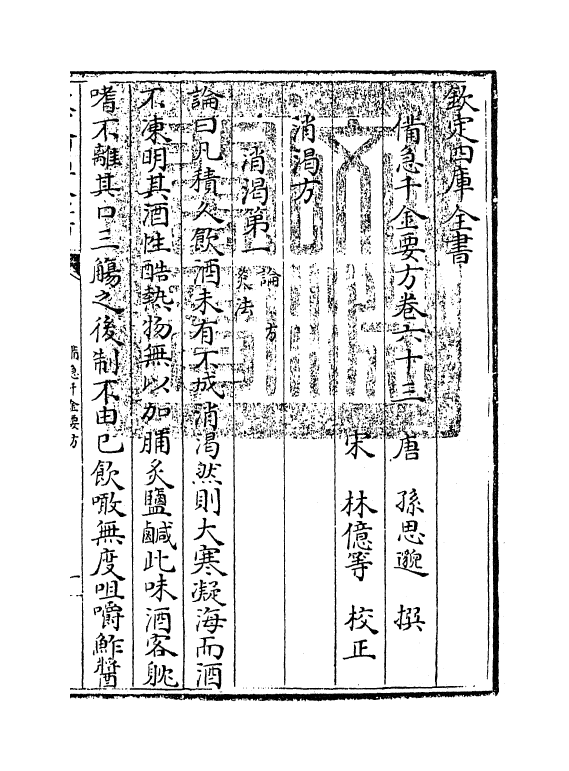 欽定四庫全書
備急千金要方卷六十三
唐 孫思邈 撰
宋 林億等 校正
消渴方
消渴第一 論 方 灸法
論曰凡積久飲酒未有不成消渴然則大寒凝海而酒
不凍明其酒性酷熱物無以加脯炙鹽鹹此味酒客躭
嗜不離其口三觴之後制不由已飲噉無度咀嚼鮓醬
備急千金要方
一